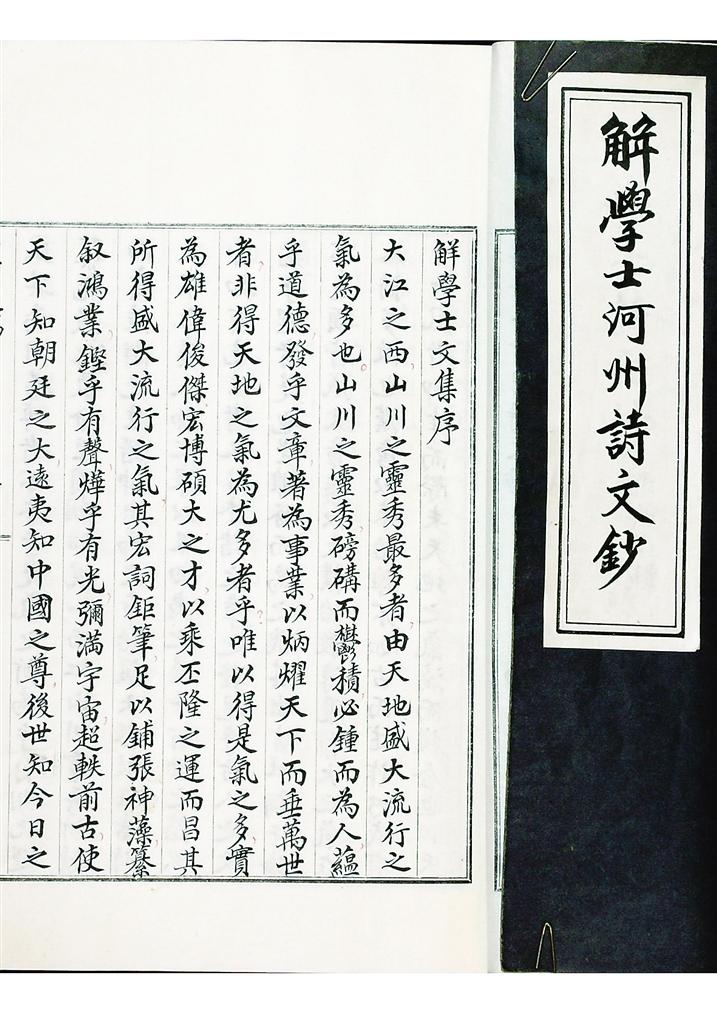 解學士河州詩文鈔
解學士文集序
大江之西山川之靈秀最多者由天地盛大流行之
氣為多也山川之靈秀磅礴而鬱積必鍾而為人蘊
乎道德發乎文章著為事業以炳燿天下而垂萬世
者非得天地之氣為尤多者乎唯以得是氣之多實
為雄偉俊傑宏博碩大之才以乘丕隆之運而昌其
所得盛大流行之氣其宏詞鉅筆足以鋪張神藻纂
敘鴻業鏗乎有聲燁乎有光彌滿宇宙超軼前古使
天下知朝廷之大遠夷知中國之尊後世知今日之